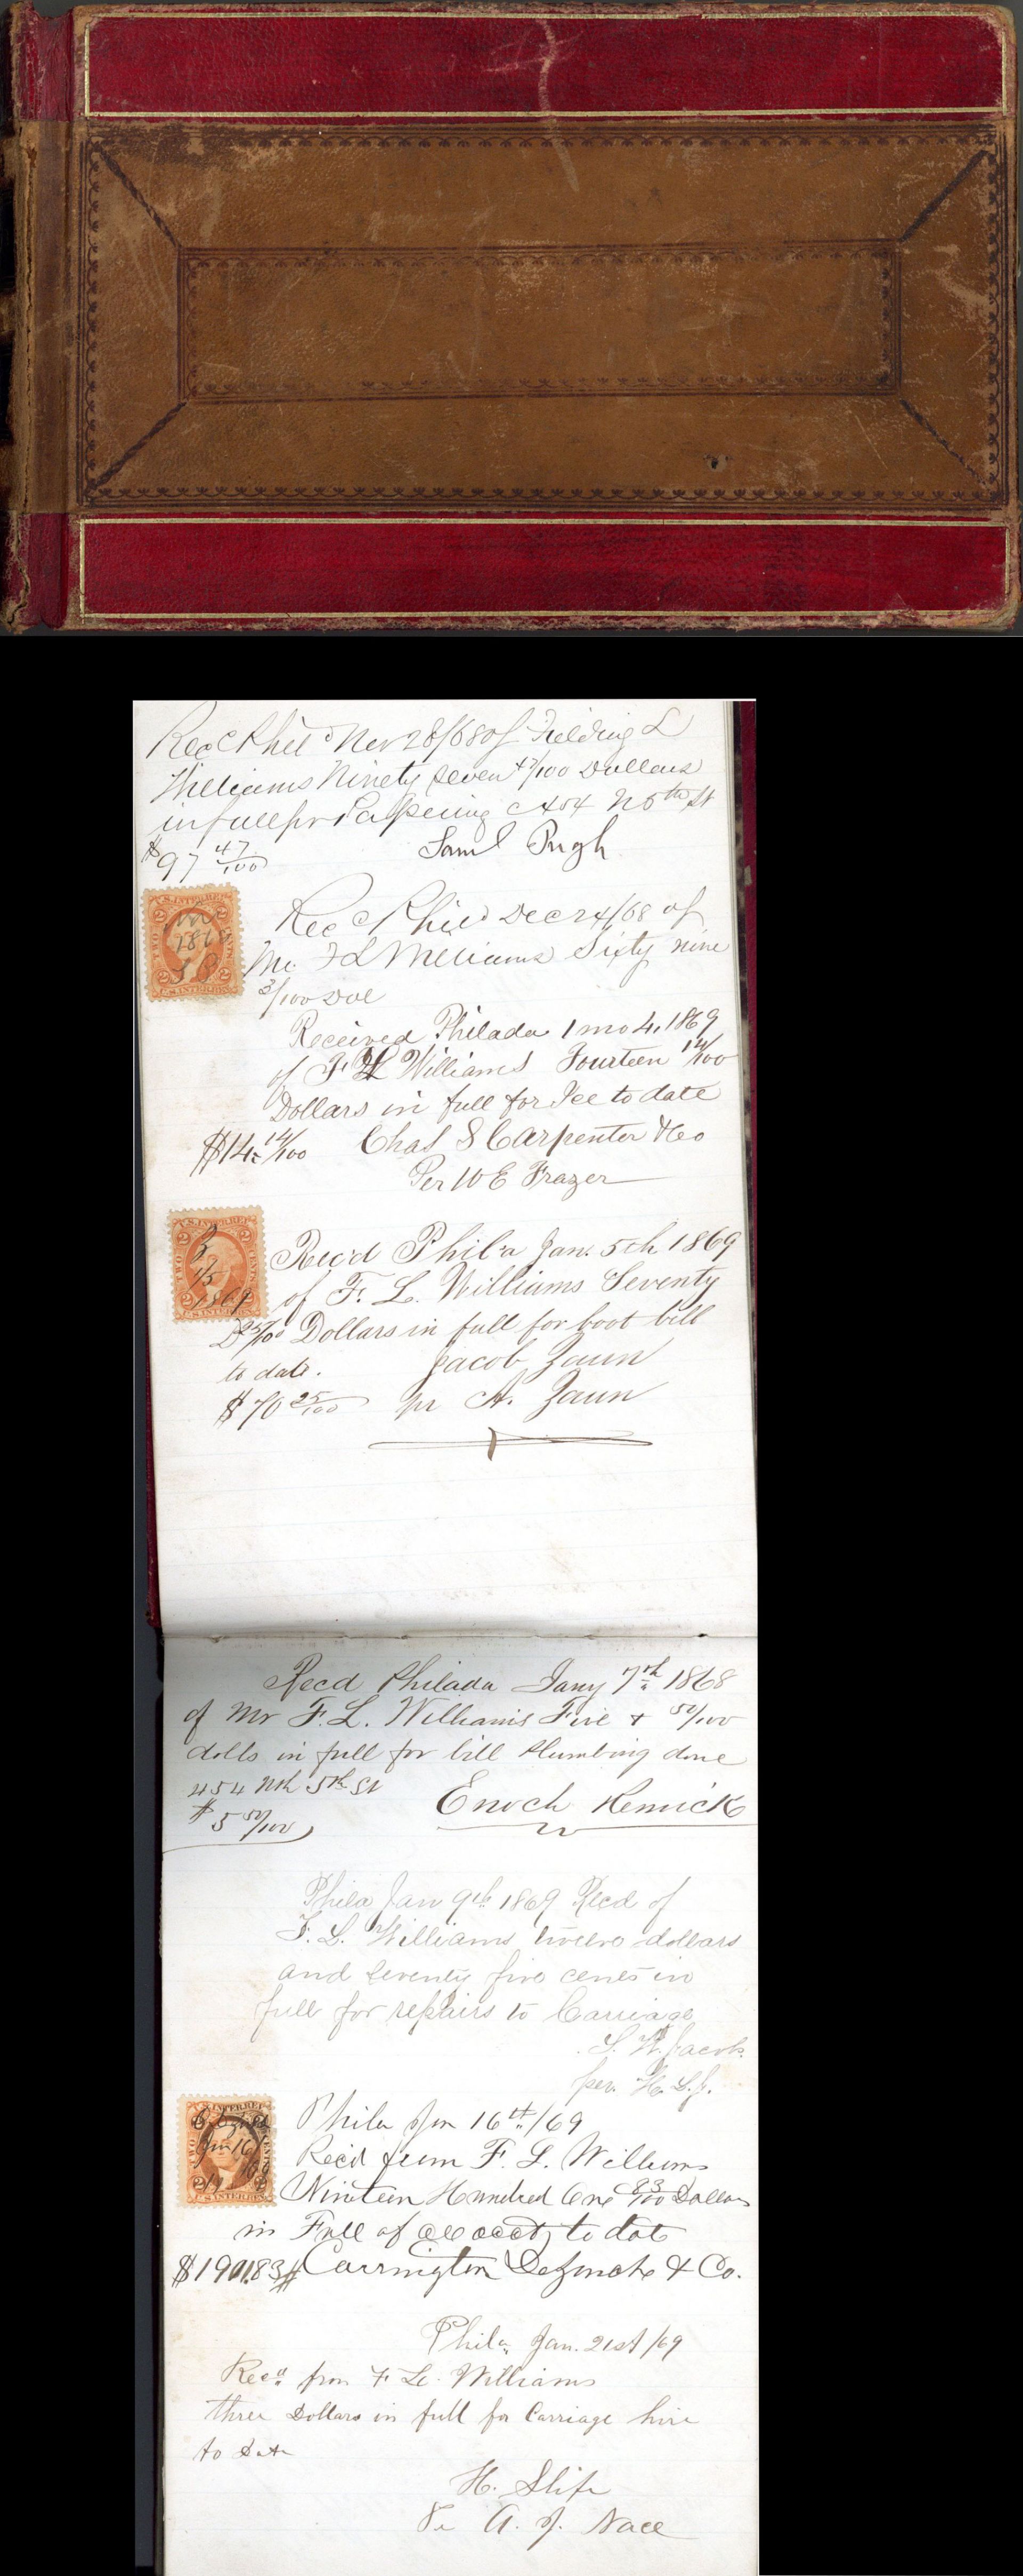 Rec Phil Nov 28/68 of Fielding L
Williams Ninety seven 47/100 Dollars
in full for Papering N 5th St
$97 47/100 Saml Pugh
U.S. INTER. REV.
2 2
TWO CENTS
1868
S P
2 2
U.S. INTER. REV.
Rec Phil Dec 24/68 of
Mr. F L Williams Sixty nine
3/100 Dol
Received Philada 1 mo 4, 1869
of F L Williams Fourteen 14/100
Dollars in full for Ice to date
$14. 14/100 Chas S Carpenter & Co
Per W E Frazer
U.S. INTER. REV.
2 2
TWO CENTS
1/5
1869
2 2
U.S. INTER. REV.
Rec'd Phil'a Jan. 5th 1869
of F. L. Williams Seventy
25/100 Dollars in full for boot bill
to date. Jacob Zaun
$70 25/100 pr A. Zaun
Recd Philada Jany 7th 1868
of Mr F. L. Williams Five & 50/100
dolls in full for bill Plumbing done
454 Nth 5th St
$5 50/100 Enoch Remick
Phila Jan 9th 1869 Recd of
F. L. Williams twelve dollars
and seventy five cents in
full for repairs to Carriage
S. W. Jacobs
per. H. S. J.
U.S. INTER. REV.
TWO CENTS
Jan 16
2 2
U.S. INTER. REV.
Phila Jan 16th/69
Rec'd from F. L. Williams
Nineteen Hundred One 83/100 Dollars
in Full of all acct to date
$1901.83 Carrington & Co.
Phila. Jan. 21st/69
Recd from F L. Williams
three Dollars in full for Carriage hire
to Date
H. Slife
Per A. J. Nace